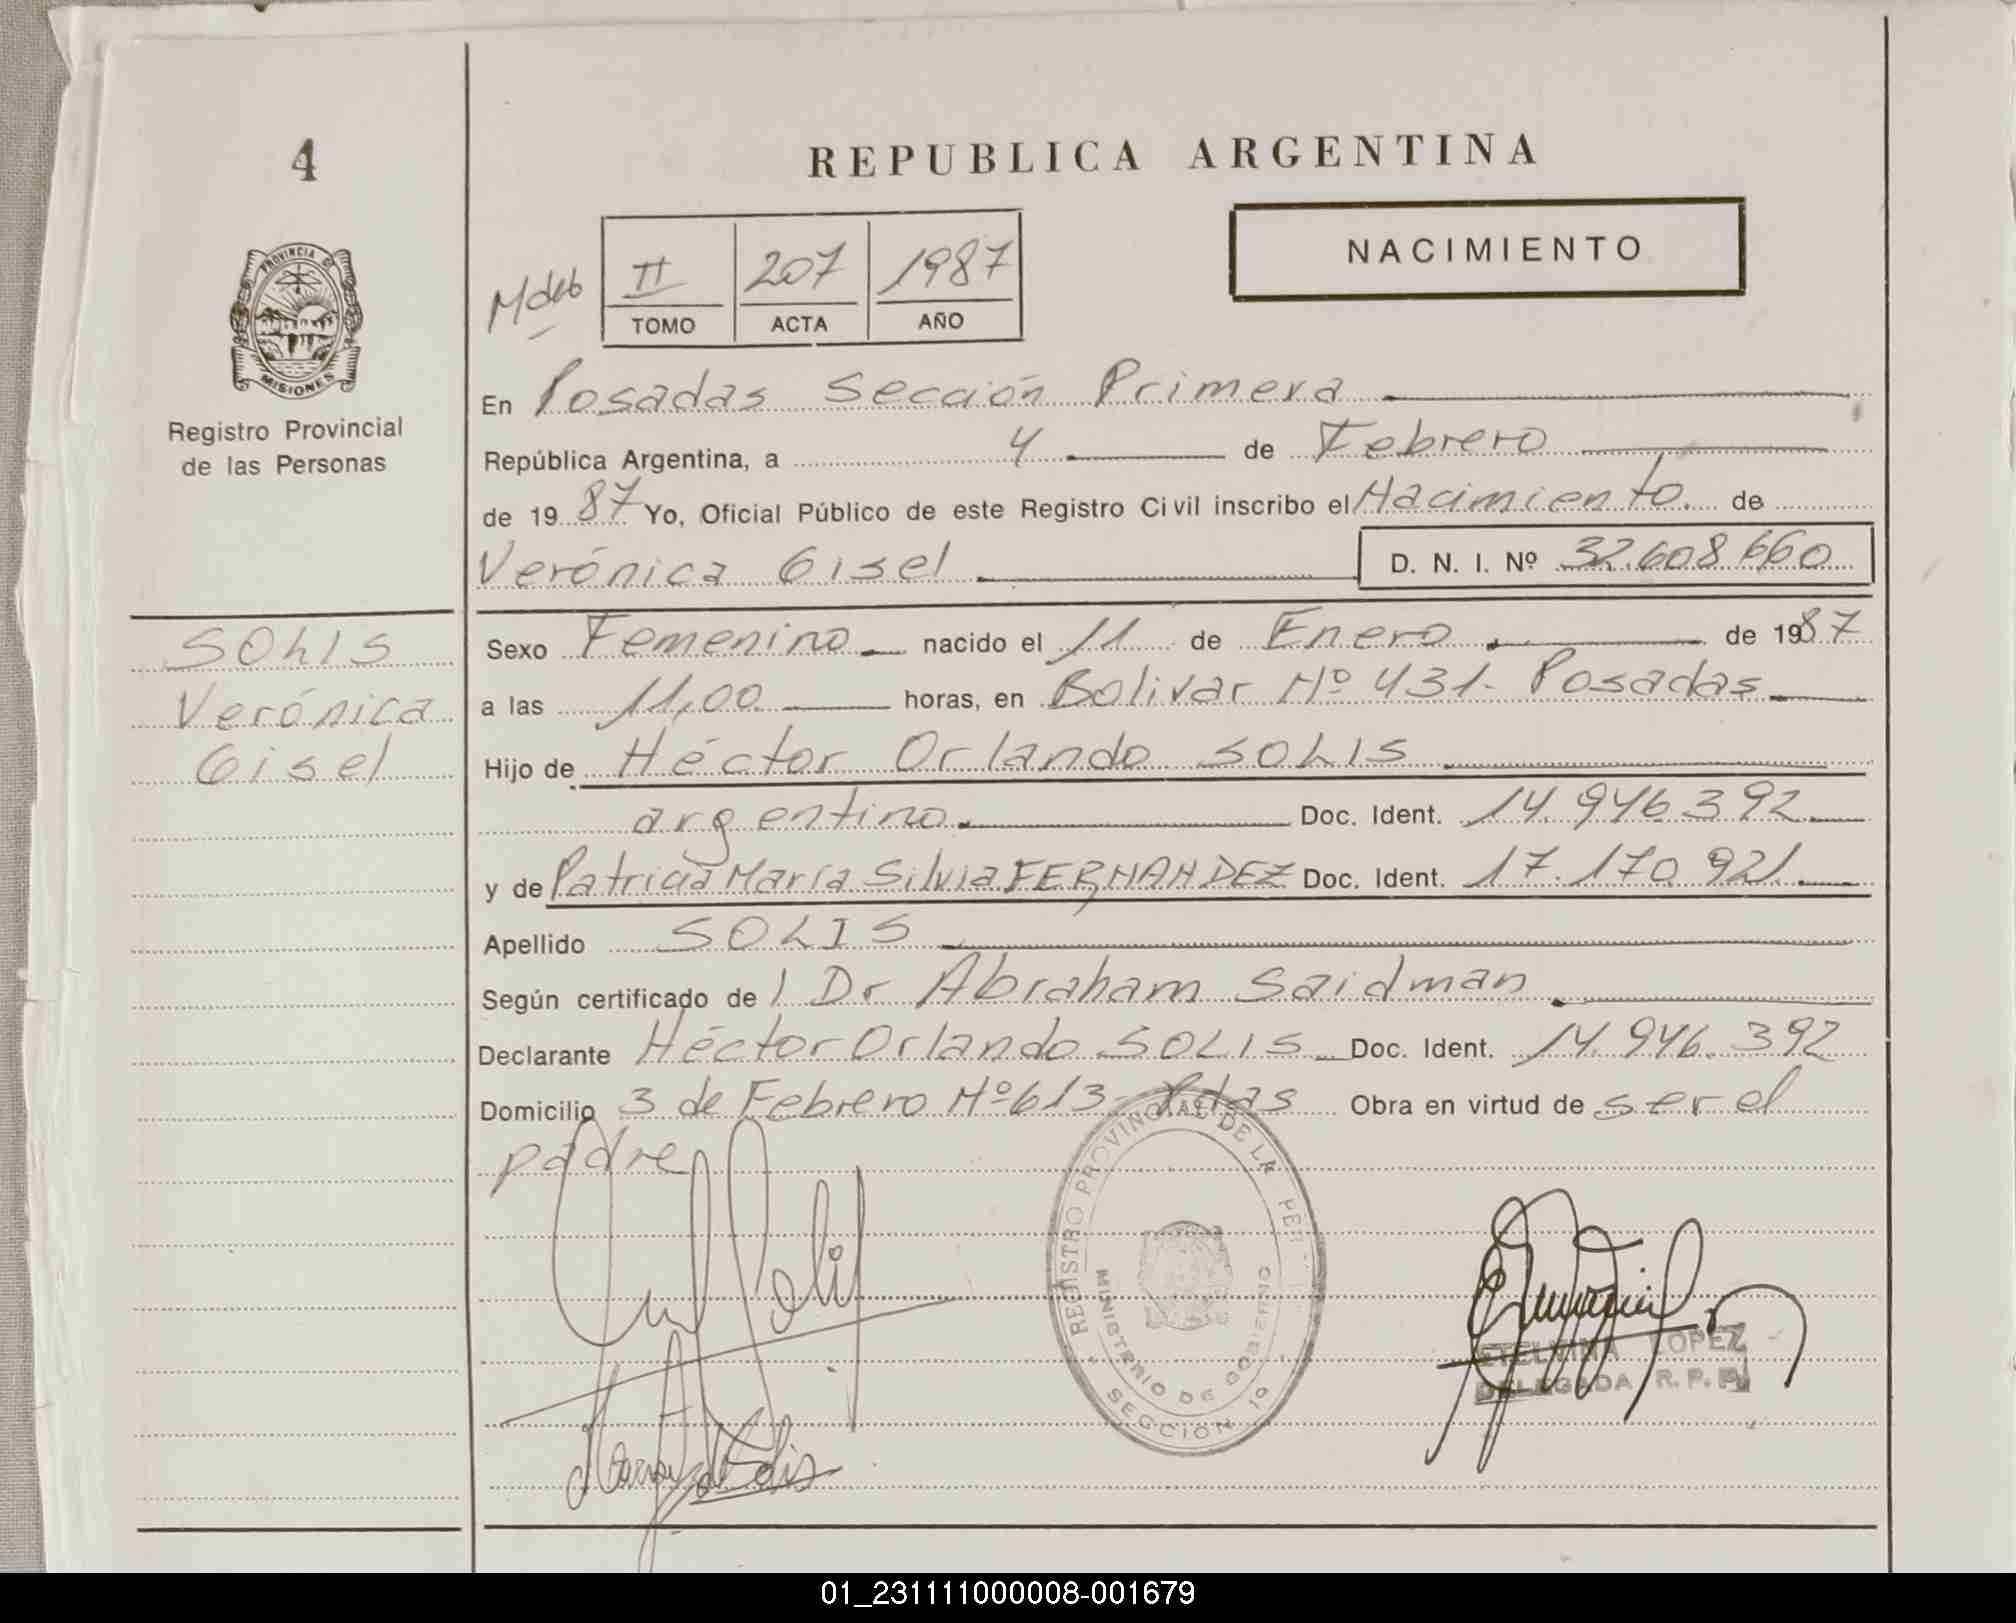 4
REPUBLICA ARGENTINA
NACIMIENTO
II 207 1987
TOMO ACTA AÑO
PROVINCIA DE
MISIONES
Registro Provincial
de las Personas
En Posadas Sección Primera
República Argentina, a 4 de Febrero
de 1987 Yo, Oficial Público de este Registro Civil inscribo el Nacimiento. de
Verónica Gisel D. N. I. Nº 32.608.660
SOLIS
Verónica
Gisel
Sexo Femenino nacido el 11 de Enero de 1987
a las 11,00 horas, en Bolivar Nº 431- Posadas
Hijo de Héctor Orlando SOLIS
argentino Doc. Ident. 14.946.392
y de Patricia María Silvia FERNANDEZ Doc. Ident. 17.170.921
Apellido SOLIS
Según certificado de l Dr Abraham Saidman
Declarante Héctor Orlando SOLIS Doc. Ident. 14.946.392
Domicilio 3 de Febrero Nº 613- Pdas Obra en virtud de ser el
padre
REGISTRO PROVINCIAL DE LA PER
MINISTERIO DE GOBIERNO
SECCION 1ª
ETELVINA LOPEZ
DELEGADA R. P. P.
01_231111000008-001679